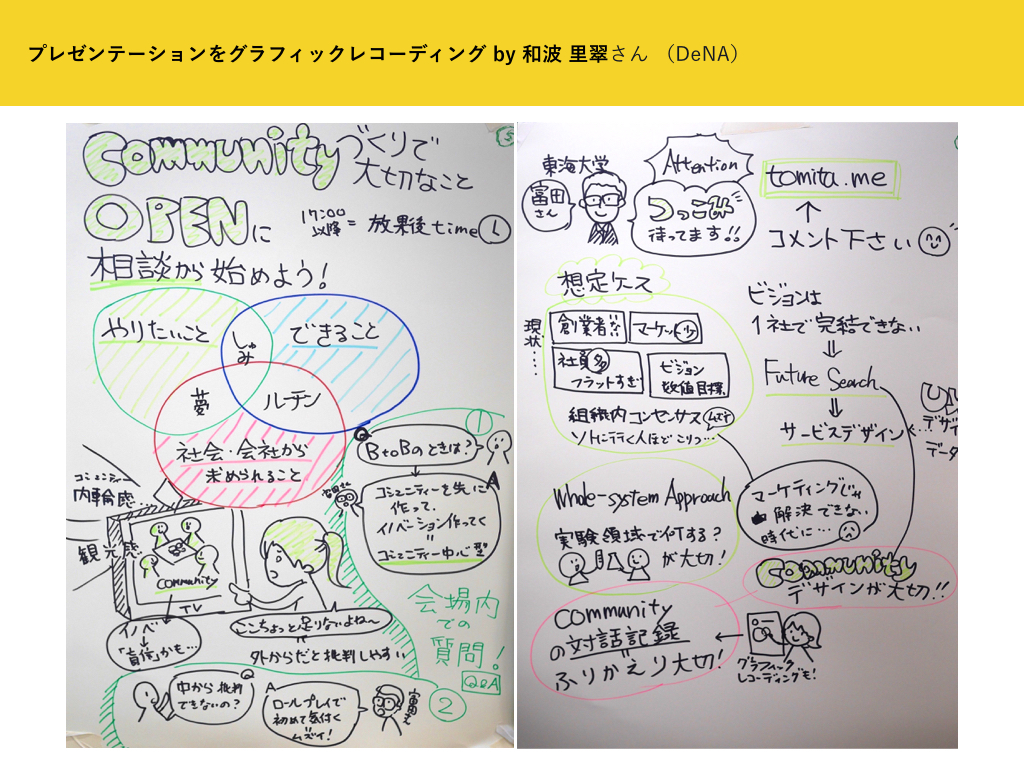 プレゼンテーションをグラフィックレコーディング by 和波 里翠さん （DeNA）
Communityづくりで
大切なこと
OPENに
17:00
以降 = 放果後time
相談から始めよう!
やりたいこと
できること
しゅみ
夢
ルーチン
社会・会社から
求められること
①
Q
BtoBのときは?
A
コミュニティーを先に
作って、
イノベーション作ってく
=
コミュニティー中心型
コミュニティー
内輪感…
観光感…
community
TV
イノベ
↓
「責任」かも…
ここちょっと足りないよね〜
外からだと批判しやすい
会場内
での
質問!
Q&A
②
Q
中から批判
できないの?
A
ロールプレイで
初めて気付く
ムズイ!
富田さん
東海大学
富田
さん
Attention
つっこみ
待ってます!!
tomita.me
↑
コメント下さい
想定ケース
現状……
創業者!!
マーケット少
社員多
フラットすぎ
ビジョン
数値目標
組織内コンセンサス ムズイ
ビジョンは
1社で完結できない
⇓
Future Search
⇓
サービスデザイン
デザイ
データ
Whole-system Approach
実験領域で何する?
が大切!
マーケティングじゃ
解決できない
時代に…
Community
デザインが大切!!
communityの対話記録
ふりがえり大切!
←
グラフィック
レコーディングも!